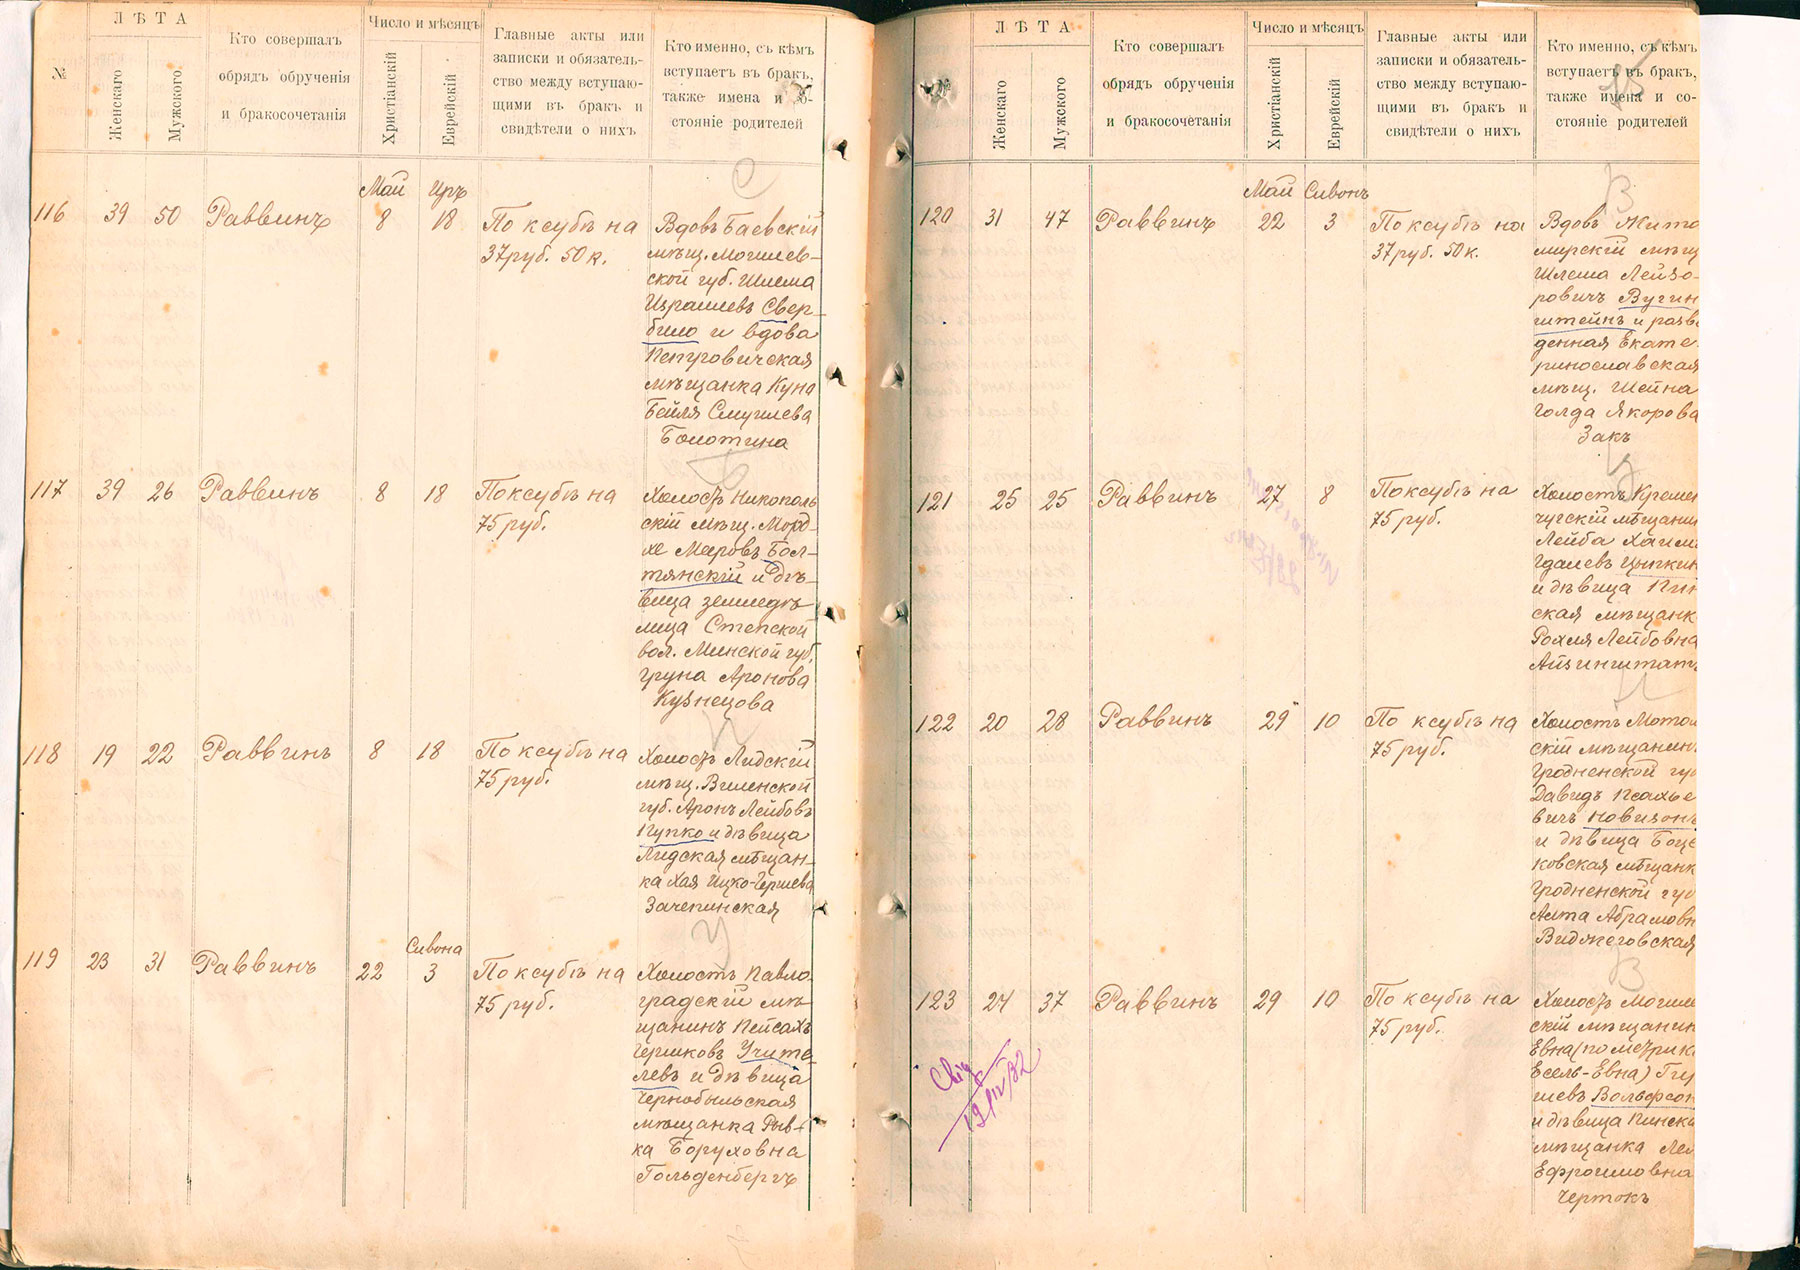 №
ЛѢТА
Женскаго
Мужского
Кто совершалъ
обрядъ обрученія
и бракосочетанія
Число и мѣсяцъ
Христіанскій
Еврейскій
Главные акты или
записки и обязатель-
ство между вступаю-
щими въ бракъ и
свидѣтели о нихъ
Кто именно, съ кѣмъ
вступаетъ въ бракъ,
также имена и со-
стояніе родителей
Май Иръ
116 39 50 Раввинъ 8 18
По ксубѣ на
37 руб. 50 к.
С
Вдовъ Баевскій
мѣщ. Могилев-
ской губ. Шлема
Израилевъ Свер-
било и вдова
Петровичская
мѣщанка Куна
Бейля Смуилева
Болотина
117 39 26 Раввинъ 8 18
По ксубѣ на
75 руб.
Б
Холостъ Никополь
скій мѣщ. Морд-
хе Меровъ Бол-
тянскій и дѣ-
вица землед��
лица Степской
вол. Минской губ.
Груна Аронова
Кузнецова
118 19 22 Раввинъ 8 18
По ксубѣ на
75 руб.
П
Холостъ Лидскій
мѣщ. Виленской
губ. Аронъ Лейбовъ
Пупко и дѣвица
Лидская мѣщан-
ка Хая Ицко-Гершева
Зачепинская
Сивона
119 23 31 Раввинъ 22 3
По ксубѣ на
75 руб.
У
Холостъ Павло-
градскій мѣ-
щанинъ Пейсахъ
Гершковъ Учите-
левъ и дѣвица
Чернобыльская
мѣщанка Рыв-
ка Боруховна
Гольденбергъ
№
ЛѢТА
Женскаго
Мужского
Кто совершалъ
обрядъ обрученія
и бракосочетанія
Число и мѣсяцъ
Христіанскій
Еврейскій
Главные акты или
записки и обязатель-
ство между вступаю-
щими въ бракъ и
свидѣтели о нихъ
Кто именно, съ кѣмъ
вступаетъ въ бракъ,
также имена и со-
стояніе родителей
Май Сивонъ
120 31 47 Раввинъ 22 3
По ксубѣ на
37 руб. 50 к.
В
Вдовъ Жито
мирскій мѣщ
Шлема Лейзо-
ровичъ Вугин
штейнъ и разве
денная Екате
ринославская
мѣщ. Шейна
Голда Якорова
Закъ
121 25 25 Раввинъ 27 8
По ксубѣ на
75 руб.
Ц
Холостъ Кремен
чугскій мѣщани
Лейба Хаимъ
Гдалевъ Цыпкин
и дѣвица Пин
ская мѣщанк
Рохля Лейбовна
Айзинштатъ
122 20 28 Раввинъ 29 10
По ксубѣ на
75 руб.
Н
Холостъ Мотол
скій мѣщанин
Гродненской гу
Давидъ Псахье
вичъ Новизонъ
и дѣвица Боце
ковская мѣщанк
Гродненской гу
Алта Абрамовн
Виджеговская
123 24 37 Раввинъ 29 10
По ксубѣ на
75 руб.
В
Холостъ Могиле
скій мѣщанин
Евна (по метрик
Есель-Евна) Гер
шевъ Вольфсон
и дѣвица Пинска
мѣщанка Лея
Ефроимовна
Чертокъ